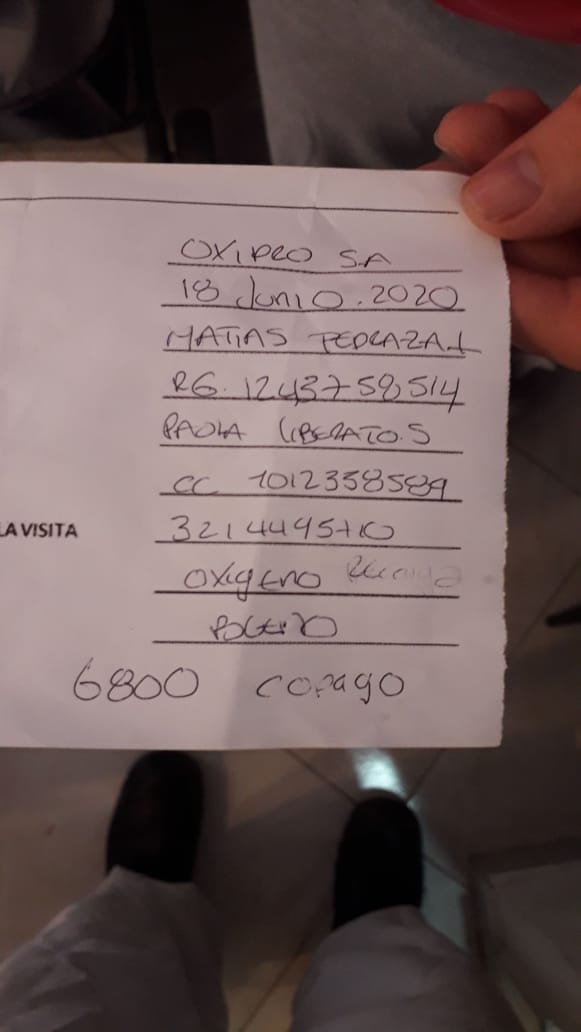 OXIPRO S.A
18 Junio. 2020
MATIAS PEDRAZA.
RG. 1243758514
PAOLA LIBERATO.S
CC 1012338589
LA VISITA
OXIGENO
6800 copago